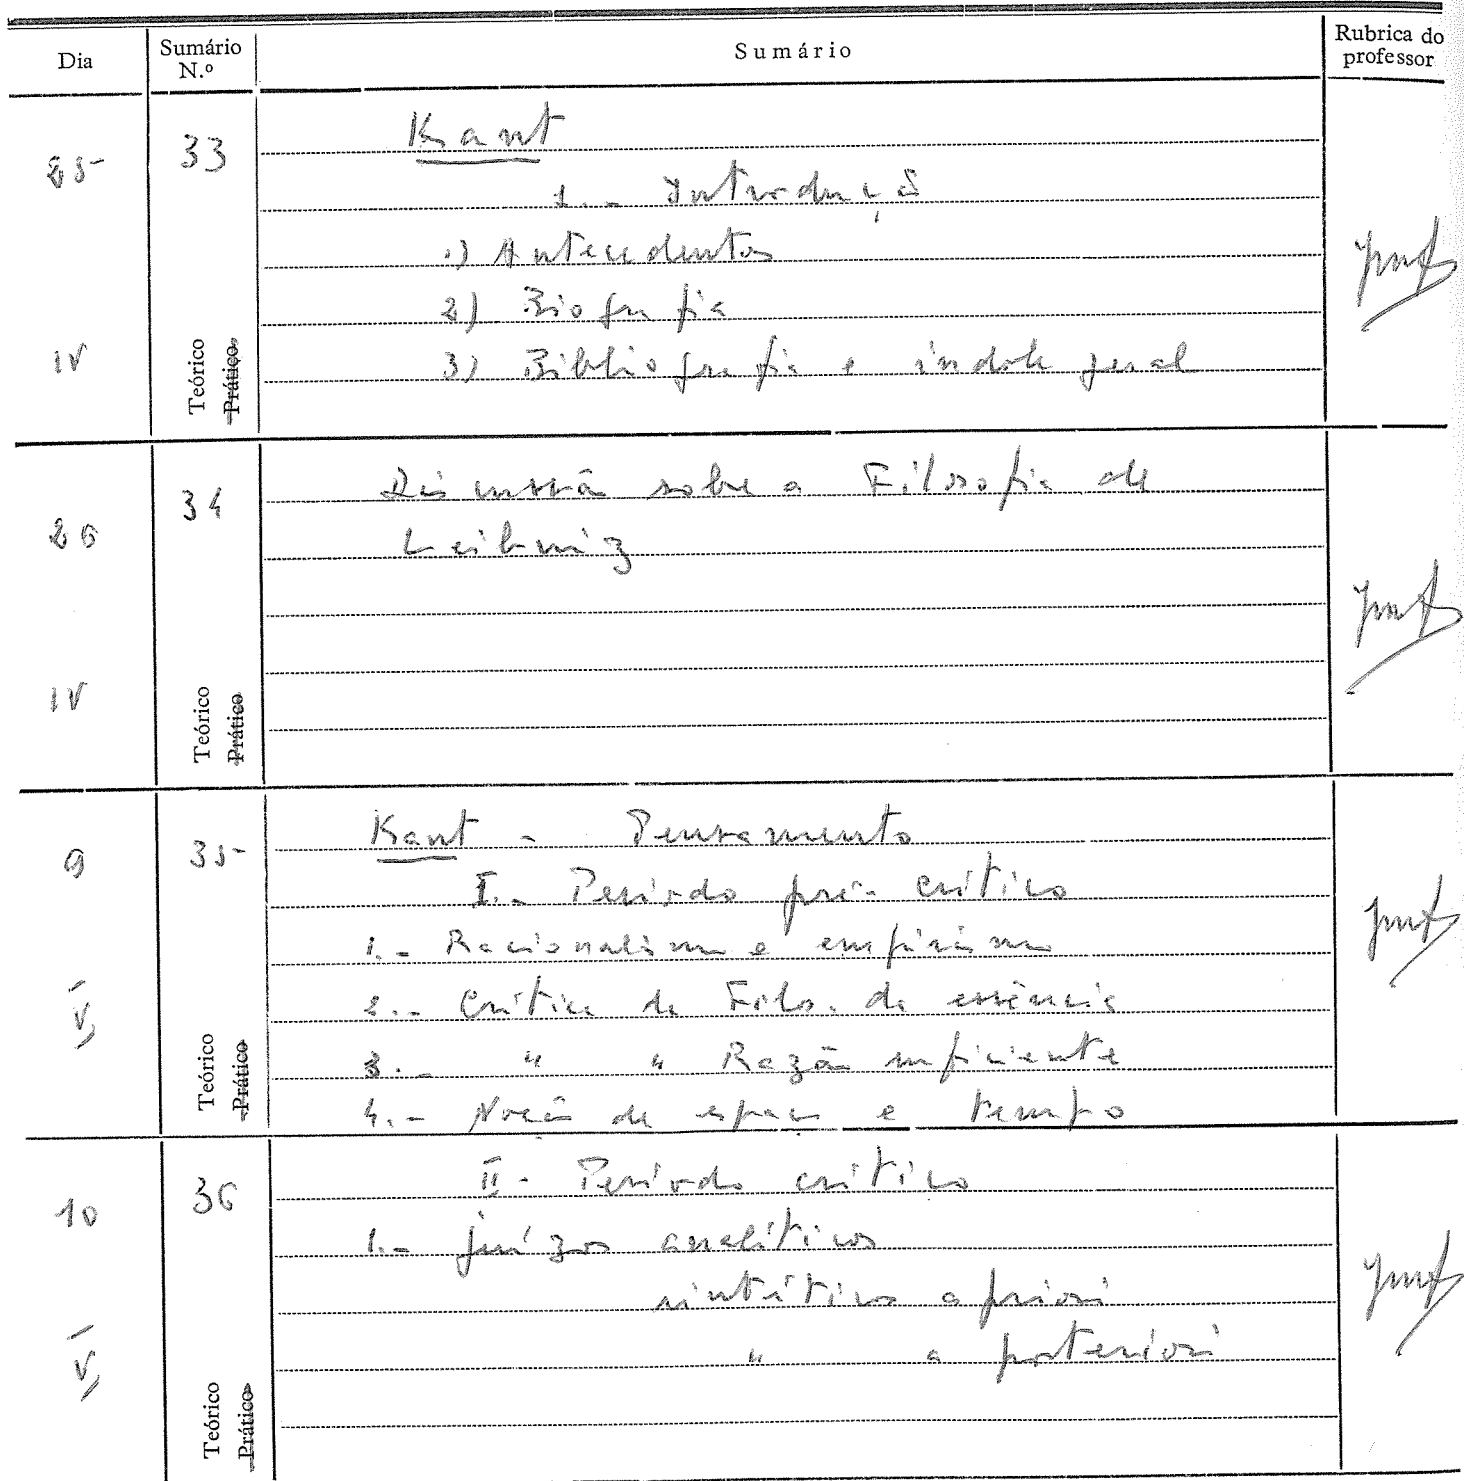 Dia Sumário N.º Sumário Rubrica do professor
25 33 Kant
1. - Introdução
1) Antecedentes
2) Biografia
IV 3) Bibliografia e índole geral
Teórico Prático
26 34 Discussão sobre a Filosofia de
Leibniz
IV
Teórico Prático
9 35 Kant - Pensamento
I. - Período pré-crítico
1. - Racionalismo e empirismo
V 2. - Crítica da Filos. da essência
3. - " " Razão suficiente
4. - Noção de espaço e tempo
Teórico Prático
10 36 II - Período crítico
1. - juízos analíticos
sintéticos a priori
V " a posteriori
Teórico Prático